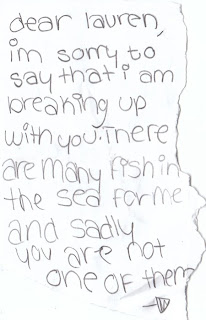 dear lauren,
im sorry to
say that i am
breaking up
with you. there
are many fish in
the sea for me
and sadly
you are not
one of them